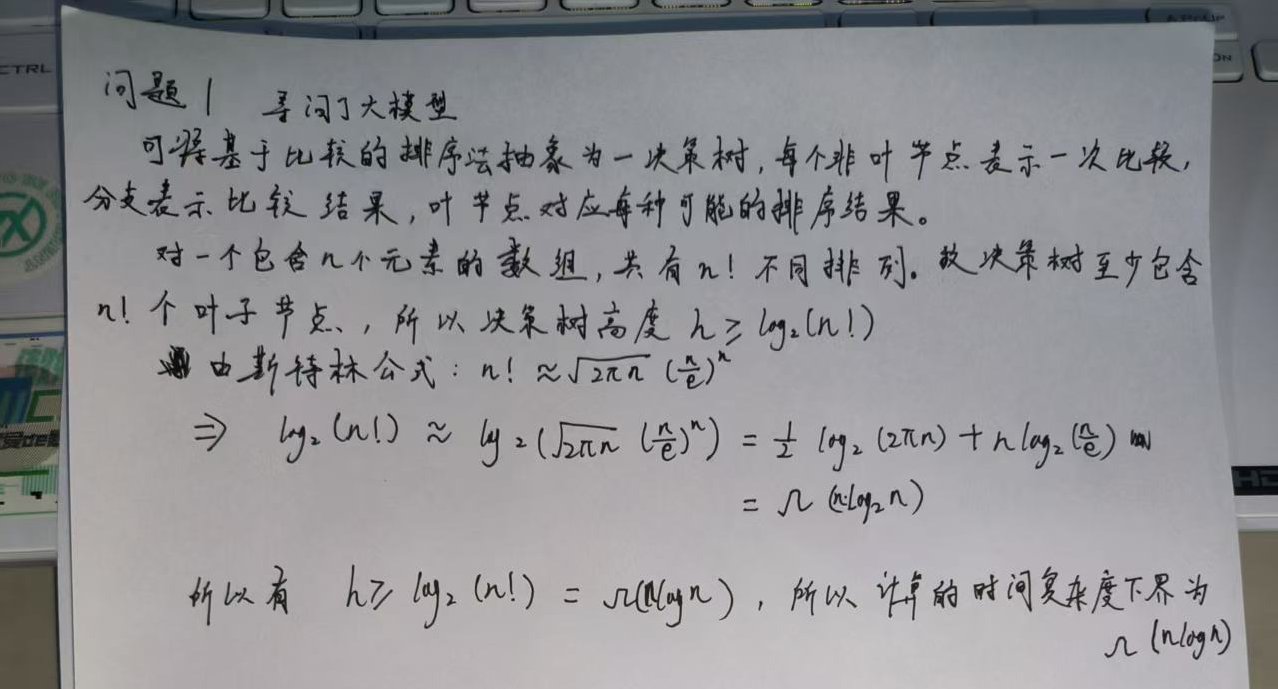 CTRL
问题1 寻问了大模型
可将基于比较的排序法抽象为一决策树,每个非叶节点表示一次比较,
分支表示比较结果,叶节点对应每种可能的排序结果。
对一个包含n个元素的数组,共有n!不同排列。故决策树至少包含
n!个叶子节点,所以决策树高度 h ≥ log₂(n!)
由斯特林公式: n! ≈ √(2πn) (n/e)ⁿ
⇒ log₂(n!) ≈ log₂(√(2πn) (n/e)ⁿ) = 1/2 log₂(2πn) + n log₂(n/e)
= Ω(n·log₂n)
所以有 h ≥ log₂(n!) = Ω(nlogn), 所以计算的时间复杂度下界为
Ω(nlogn)